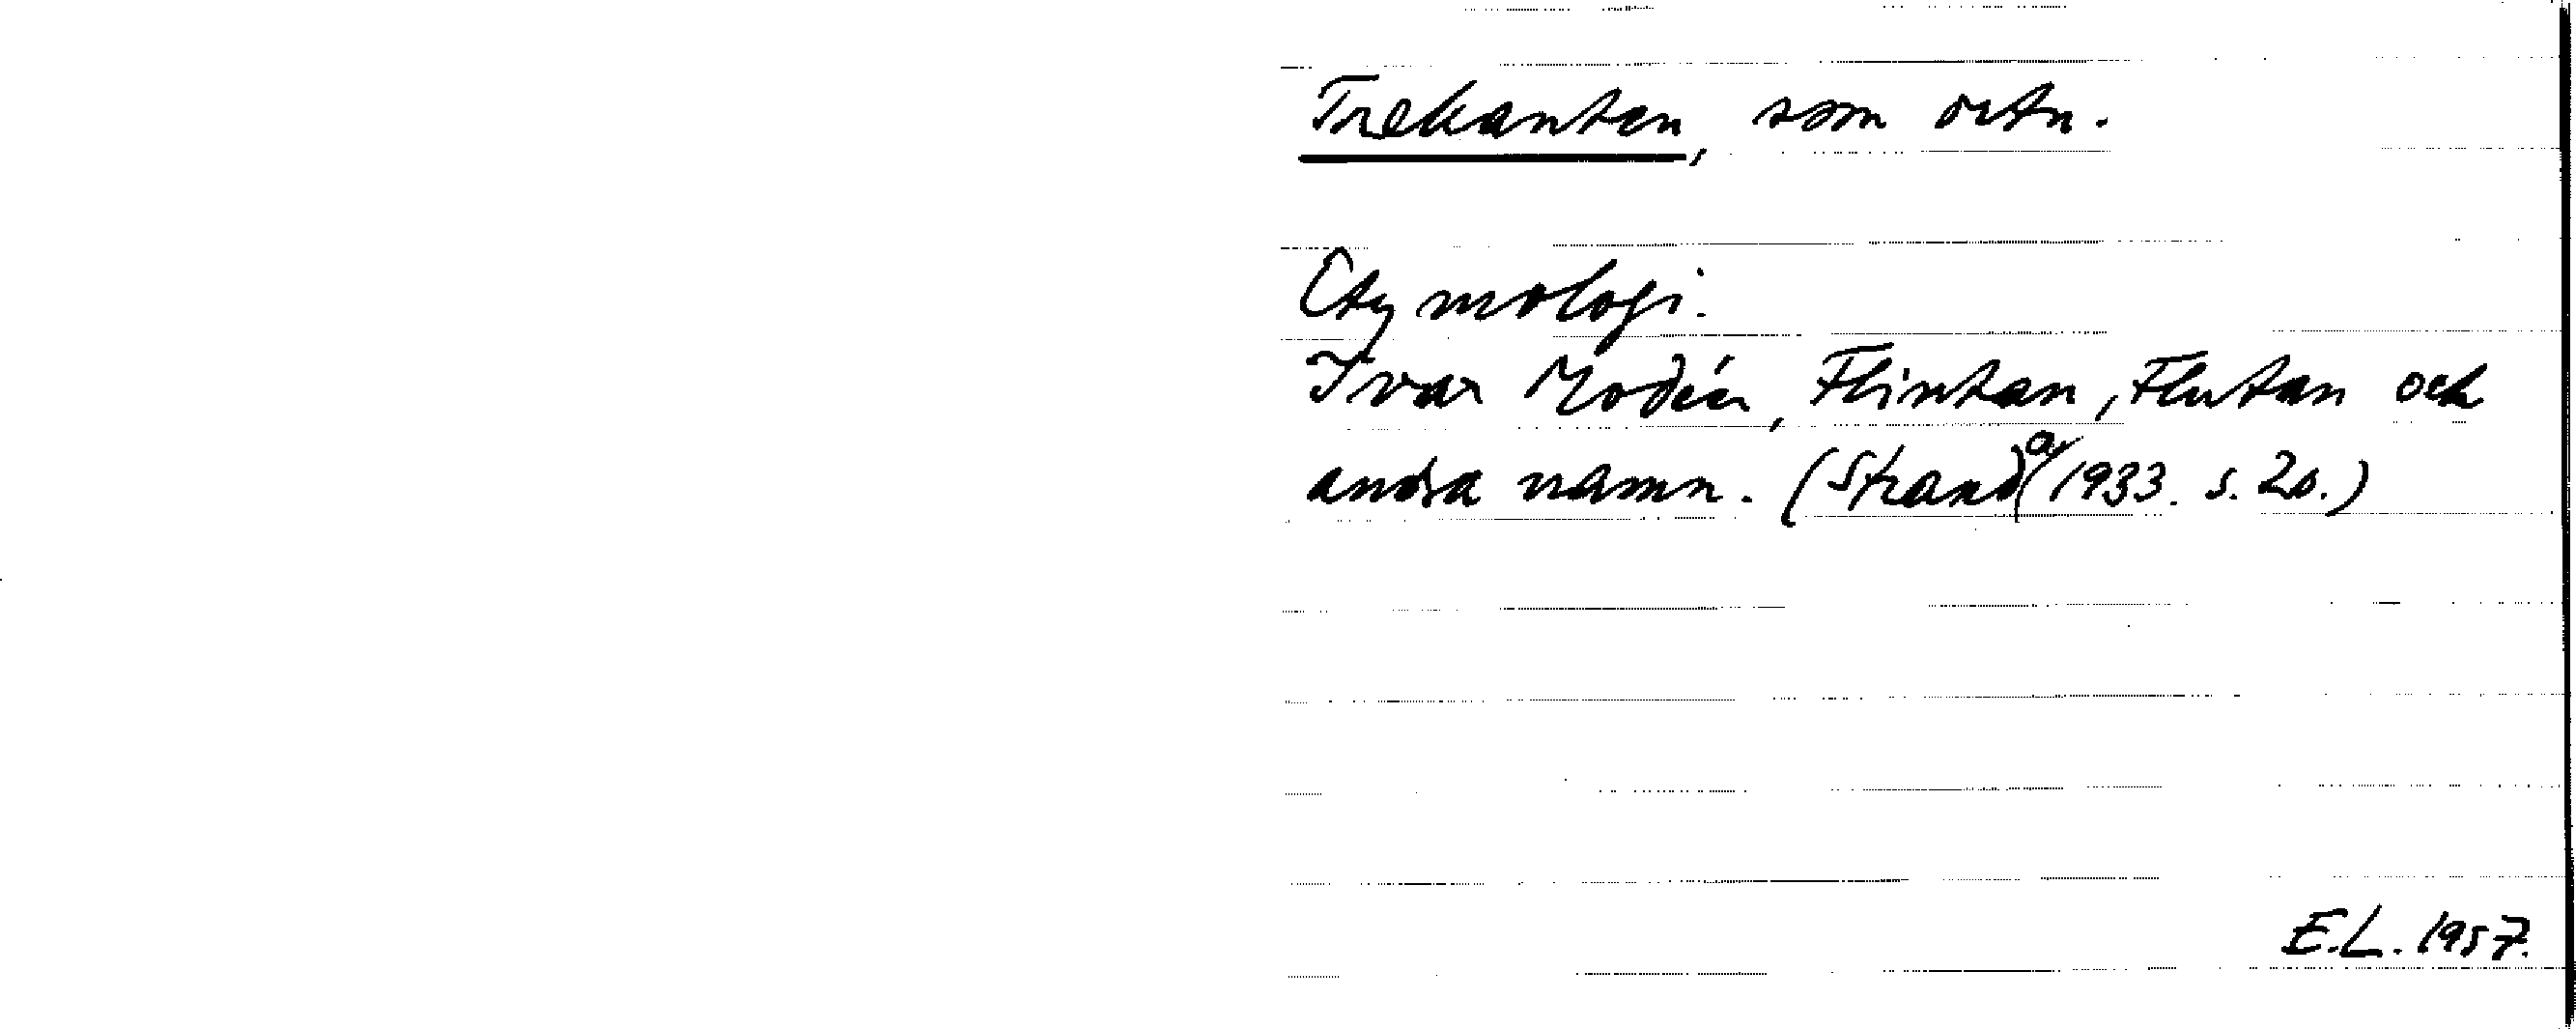 Trekanten, som ortn.
Etymologi.
Ivar Modéer, Flintan, Flutan och
andra namn. (Stranda 1933. s. 20.)
E.L. 1957.